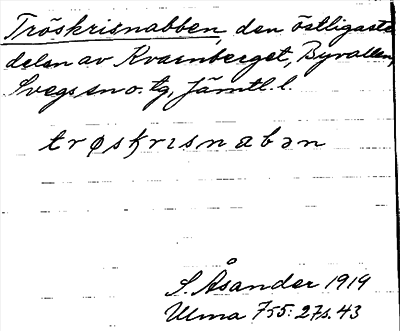 Tröskrisnabben, den östligaste
delen av Kvarnberget, Byvallen,
Svegs sn o. tg, Jämtl. l.
trøsk̡rɪsnabən
S. Åsander 1919
Ulma 755: 27 s. 43